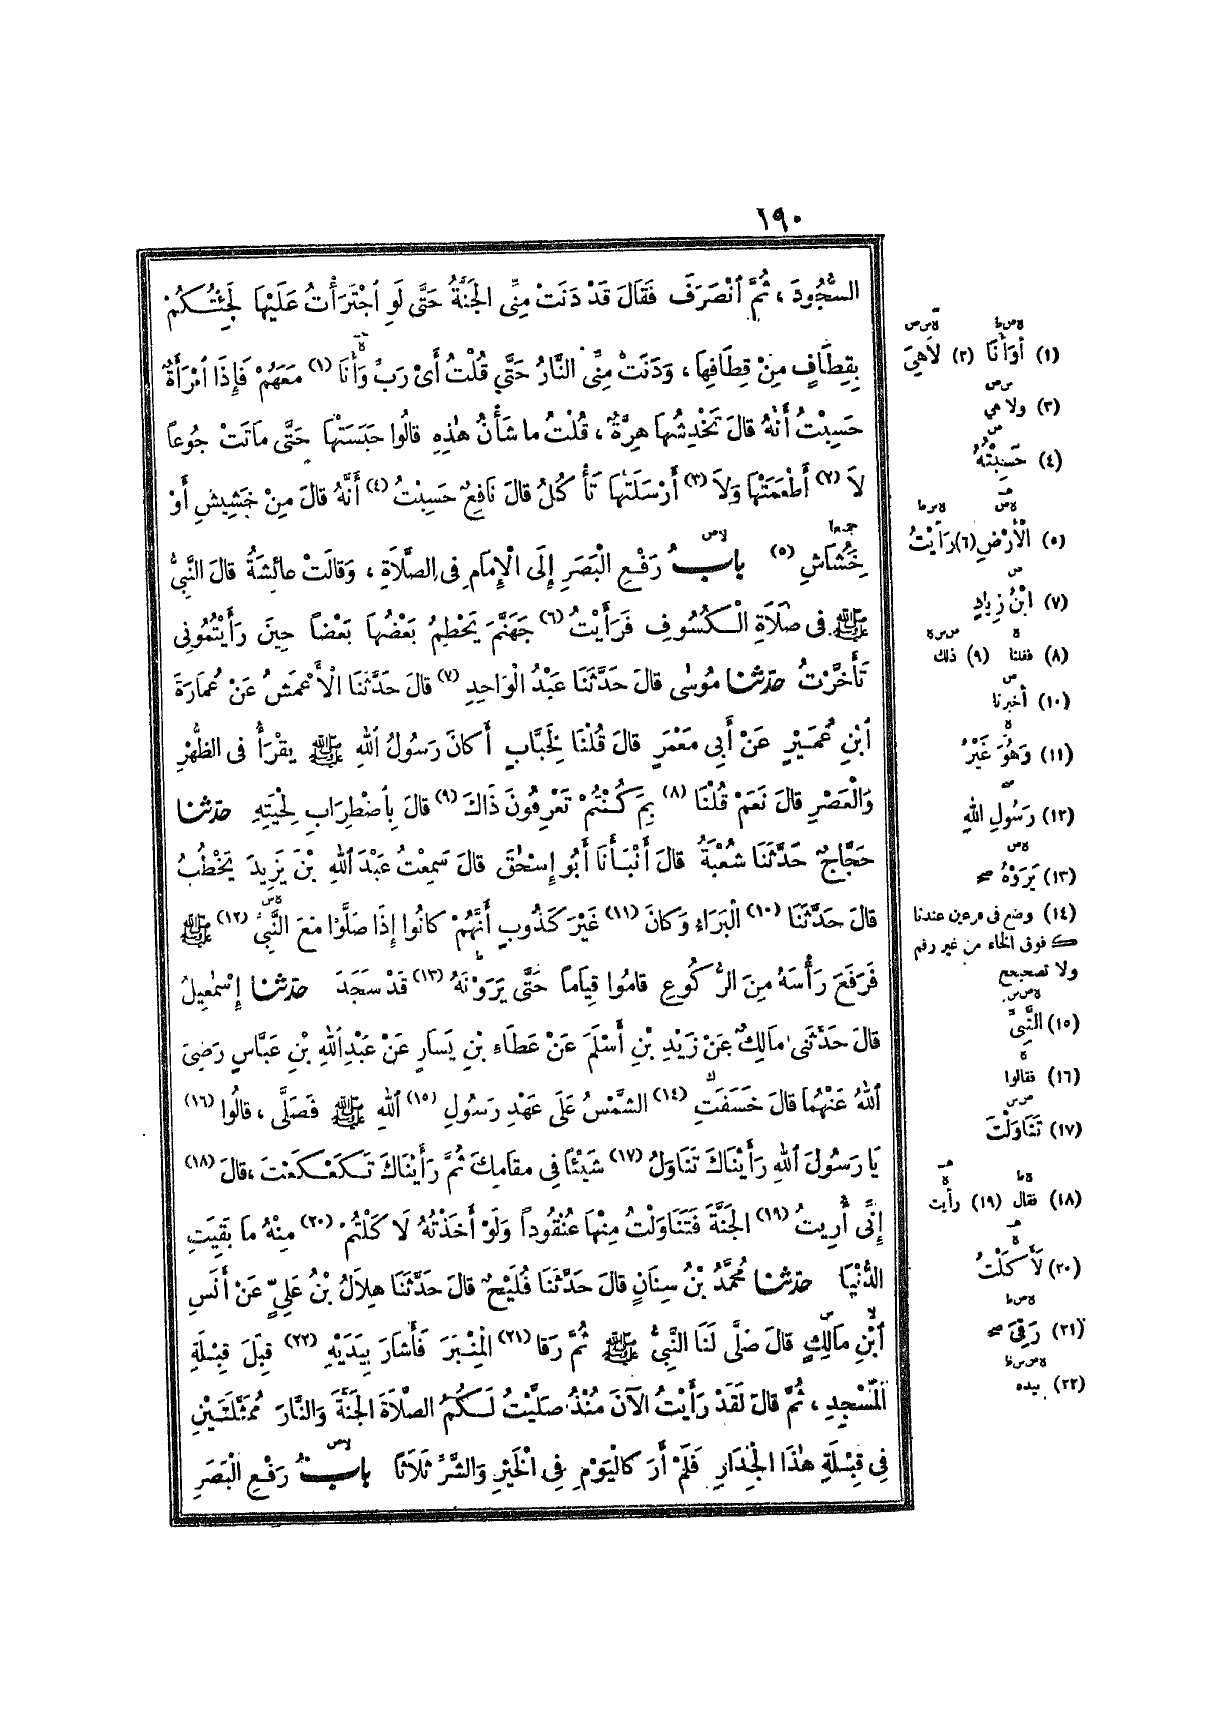 ١٩٠
السُّجُودَ ، ثُمَّ ٱنْصَرَفَ فَقَالَ قَدْ دَنَتْ مِنِّى الجَنَّةُ حَتَّى لَوِ ٱجْتَرَأْتُ عَلَيْهَا لَجِئْتُكُمْ
بِقِطَافٍ مِنْ قِطَافِهَا ، وَدَنَتْ مِنِّى النَّارُ حَتَّى قُلْتُ أَىْ رَبِّ وَأَنَا (١) مَعَهُمْ فَإِذَا ٱمْرَأَةٌ
حَسِبْتُ أَنَّهُ قالَ تَخْدِشُهَا هِرَّةٌ ، قُلْتُ ما شَأْنُ هٰذِهِ قالُوا حَبَسَتْهَا حَتَّى ماتَتْ جُوعاً
لاَ (٢) أَطْعَمَتْهَا وَلاَ (٣) أَرْسَلَتْهَا تَأْكُلُ قالَ نَافِعٌ حَسِبْتُ (٤) أَنَّهُ قالَ مِنْ خَشِيشِ أَوْ
خُشَاشِ (٥) بابُ رَفْعِ الْبَصَرِ إِلَى الْإِمَامِ فِى الصَّلاَةِ ، وَقَالَتْ عائِشَةُ قالَ النَّبِىُّ
ﷺ فى صَلاَةِ الْكُسُوفِ فَرَأَيْتُ (٦) جَهَنَّمَ يَحْطِمُ بَعْضُهَا بَعْضاً حِينَ رَأَيْتُمُونِى
تَأَخَّرْتُ حدّثنا مُوسٰى قالَ حَدَّثَنَا عَبْدُ الْوَاحِدِ (٧) قالَ حَدَّثَنَا الْأَعْمَشُ عَنْ عُمَارَةَ
ٱبْنِ عُمَيْرٍ عَنْ أَبِى مَعْمَرٍ قالَ قُلْنَا لِخَبَّابٍ أَكَانَ رَسُولُ ٱللهِ ﷺ يَقْرَأُ فى الظُّهْرِ
وَالْعَصْرِ قالَ نَعَمْ قُلْنَا (٨) بِمَ كُنْتُمْ تَعْرِفُونَ ذَاكَ (٩) قالَ بِٱضْطِرَابِ لِحْيَتِهِ حدّثنا
حَجَّاجٌ حَدَّثَنَا شُعْبَةُ قالَ أَنْبَأَنَا أَبُو إِسْحٰقَ قالَ سَمِعْتُ عَبْدَ ٱللهِ بْنَ يَزِيدَ يَخْطُبُ
قالَ حَدَّثَنَا (١٠) الْبَرَاءُ وَكَانَ (١١) غَيْرَ كَذُوبٍ أَنَّهُمْ كانُوا إِذَا صَلَّوْا مَعَ النَّبِىِّ (١٢) ﷺ
فَرَفَعَ رَأْسَهُ مِنَ الرُّكُوعِ قامُوا قِيَاماً حَتَّى يَرَوْنَهُ (١٣) قَدْ سَجَدَ حدّثنا إِسْمٰعِيلُ
قالَ حَدَّثَنِى مَالِكٌ عَنْ زَيْدِ بْنِ أَسْلَمَ عَنْ عَطَاءِ بْنِ يَسَارٍ عَنْ عَبْدِ ٱللهِ بْنِ عَبَّاسٍ رَضِىَ
ٱللهُ عَنْهُمَا قالَ خَسَفَتِ (١٤) الشَّمْسُ عَلَى عَهْدِ رَسُولِ (١٥) ٱللهِ ﷺ فَصَلَّى ، قالُوا (١٦)
يَا رَسُولَ ٱللهِ رَأَيْنَاكَ تَنَاوَلُ (١٧) شَيْئاً فِى مقامِكَ ثُمَّ رَأَيْنَاكَ تَكَعْكَعْتَ ، قالَ (١٨)
إِنِّى أُرِيتُ (١٩) الجَنَّةَ فَتَنَاوَلْتُ مِنْهَا عُنْقُوداً وَلَوْ أَخَذْتُهُ لَأَكَلْتُمْ (٢٠) مِنْهُ ما بَقِيَتِ
الدُّنْيَا حدّثنا مُحَمَّدُ بْنُ سِنَانٍ قالَ حَدَّثَنَا فُلَيْحٌ قالَ حَدَّثَنَا هِلاَلُ بْنُ عَلِىٍّ عَنْ أَنَسِ
ٱبْنِ مالِكٍ قالَ صَلَّى لَنَا النَّبِىُّ ﷺ ثُمَّ رَقَا (٢١) الْمِنْبَرَ فَأَشَارَ بِيَدَيْهِ (٢٢) قِبَلَ قِبْلَةِ
الْمَسْجِدِ ، ثُمَّ قالَ لَقَدْ رَأَيْتُ الآنَ مُنْذُ صَلَّيْتُ لَكُمُ الصَّلاَةَ الجَنَّةَ وَالنَّارَ مُمَثَّلَتَيْنِ
فِى قِبْلَةِ هٰذَا الْجِدَارِ فَلَمْ أَرَ كالْيَوْمِ فِى الْخَيْرِ وَالشَّرِّ ثَلاَثاً بابُ رَفْعِ الْبَصَرِ
(١) أَوَأَنَا (٢) لاَهِىَ
(٣) ولا هي
(٤) حَسِبْتُهُ
(٥) الْأَرْضِ (٦) رَأَيْتُ
(٧) ابْنُ زِيَادٍ
(٨) فقلنا (٩) ذلك
(١٠) أخبرنا
(١١) وَهُوَ غَيْرُ
(١٢) رَسُولِ اللهِ
(١٣) يَرَوْهُ صح
(١٤) وضع فى فرعين عندنا
ك فوق الخاء من غير رقم
ولا تصحيح
(١٥) النَّبِىِّ
(١٦) فقالوا
(١٧) تَنَاوَلْتَ
(١٨) فقال (١٩) رأيت
(٢٠) لَأَكَلْتُ
(٢١) رَقِىَ صح
(٢٢) بيده